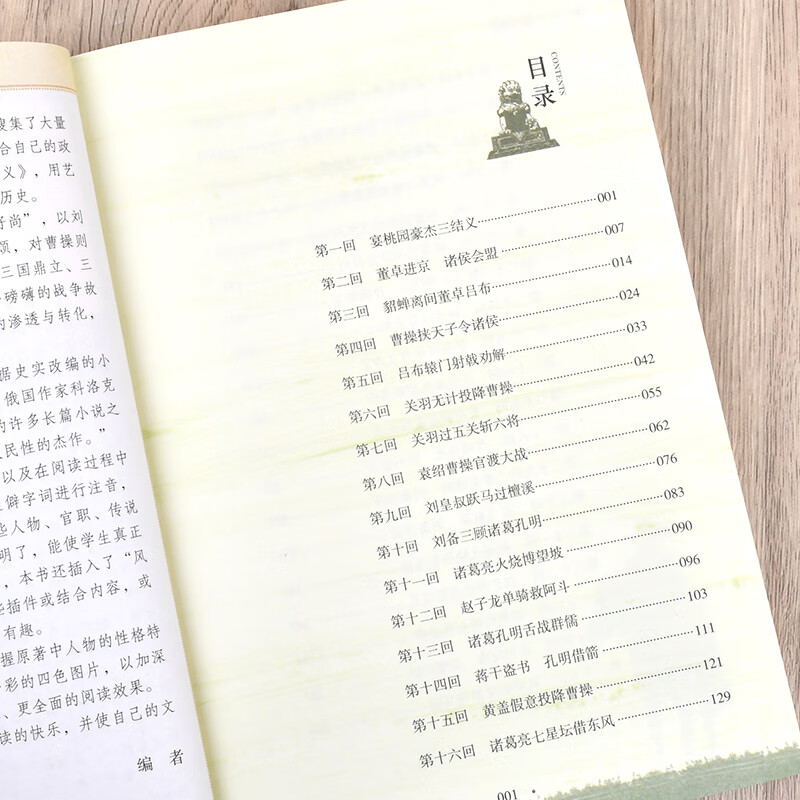 搜集了大量
合自己的政
义》，用艺
历史。
好尚”，以刘
颂，对曹操则
三国鼎立、三
磅礴的战争故
的渗透与转化，
据史实改编的小
俄国作家科洛克
的许多长篇小说之
人民性的杰作。”
以及在阅读过程中
生僻字词进行注音，
些人物、官职、传说
明了，能使学生真正
，本书还插入了“风
些插件或结合内容，或
有趣。
握原著中人物的性格特
彩的四色图片，以加深
、更全面的阅读效果。
读的快乐，并使自己的文
编 者
目录
CONTENTS
第一回 宴桃园豪杰三结义……001
第二回 董卓进京 诸侯会盟……007
第三回 貂蝉离间董卓吕布……014
第四回 曹操挟天子令诸侯……024
第五回 吕布辕门射戟劝解……033
第六回 关羽无计投降曹操……042
第七回 关羽过五关斩六将……055
第八回 袁绍曹操官渡大战……062
第九回 刘皇叔跃马过檀溪……076
第十回 刘备三顾诸葛孔明……083
第十一回 诸葛亮火烧博望坡……090
第十二回 赵子龙单骑救阿斗……096
第十三回 诸葛孔明舌战群儒……103
第十四回 蒋干盗书 孔明借箭……111
第十五回 黄盖假意投降曹操……121
第十六回 诸葛亮七星坛借东风……129
001